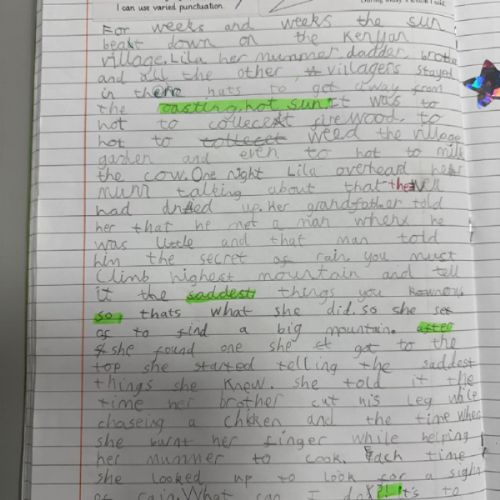 I can use varied punctuation.
For weeks and weeks the sun
beat down on the Kenyan
village. Lila her mummer dadder, brothe
and all the other villagers stayed
in there hats to get away from
the rasting, hot sun. It was to
hot to collecect firewood, to
hot to collecet weed the village
garden and even to hot to milk
the cow. One night Lila overheard her
mum talking about that the well
had dried up. Her grandfather told
her that he met a man where he
was little and that man told
him the secret of rain you must
climb highest mountain and tell
it the saddest things you
so, thats what she did. so she set
of to find a big mountain. after
she found one she got to the
top she started telling the saddest
things she knew. she told it the
time her brother cut his leg while
chaseing a chiken and the time when
she burnt her finger while helping
her mummer to cook. Each time
she looked up to look for a sign
of rain. What can I do?! It's to